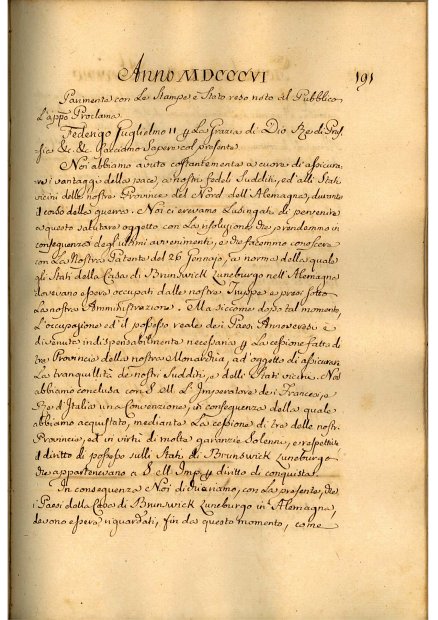 Anno MDCCCVI
191
Parimente con le Stampe è stato reso noto al Pubblico
l'app.o Proclama
Federigo Guglielmo II p la Grazia di Dio Re di Prus-
sia &c. &c. Facciamo Sapere col presente
Noi abbiamo avuto costantemente a cuore di assicura-
re i vantaggi della pace, a nostri fedeli Sudditi, ed alli Stati
vicini delle nostre Provincie del Nord dell'Alemagna, durante
il corso della guerra. Noi ci eravamo Lusingati di pervenire
a questo salutare oggetto con la risoluzione, che prendemmo in
conseguenza degli ultimi avvenimenti, e che facemmo conoscere
con La Nostra Patente del 26 Gennajo, a norma della quale
gli Stati della Casa di Brunswick Luneburgo nell'Alemagna
dovevano essere occupati dalle nostre Truppe e presi sotto
La nostra Amministrazione. Ma siccome dopo tal momento
L'occupazione ed il possesso reale dei Paesi Annoveresi è
divenuto indispensabilmente necessario p la cessione fatta di
tre Provincie della nostra Monarchia, ad oggetto di assicurare
La tranquillità de nostri Sudditi, e delli Stati vicini. Noi
abbiamo conclusa con S. M. L'Imperatore dei Francesi, e
Re d'Italia una Convenzione, in conseguenza della quale
abbiamo acquistato, mediante La cessione di tre delle nostri
Provincie, ed in virtù di molte garanzie Solenni, e respettive
il diritto di possesso sulli Stati di Brunswick Luneburgo
che appartenevano a S. M. Imp. p diritto di conquista.
In conseguenza Noi dichiariamo, con La presente, che
i Paesi della Casa di Brunswick Luneburgo in Alemagna,
devono essere riguardati, fin da questo momento, come